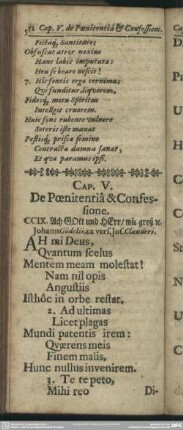 352 Cap. V. de Pœnitentiâ & Confessione.
Fictaq; Sanctitate;
Obfuscat atror noxius
Hanc labis imputata:
Heu se beare nescit!
7. His fontis ergo venimus;
Qui funditur, liquorem,
Fideq; meru Spiritus
Intelliget cruorem.
Huic fons rubente vulnere
Soteris iste manat
Pestisq; prisca femine
Contracta damna sanat,
Et qvæ paramus ipsi.
CAP. V.
De Pœnitentiâ & Confes-
sione.
CCIX. Ach GOtt und HErr/ wie groß ꝛc.
Johann Gödelii, ex vers. Jos. Clauderi.
AH mi Deus,
Qvantum scelus
Mentem meam molestat!
Nam nil opis
Angustiis
Isthôc in orbe restat.
2. Ad ultimas
Licet plagas
Mundi patentis irem:
Qværens meis
Finem malis,
Hunc nullus invenirem.
3. Te te peto,
Mihi reo
Di-